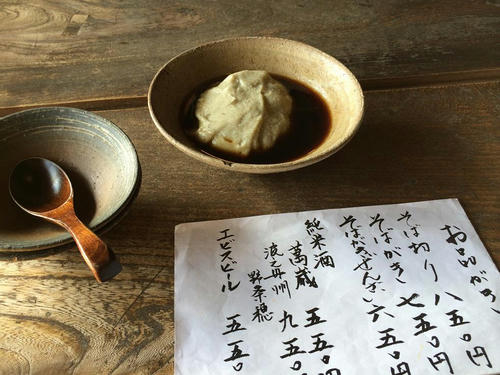 お品がき
そば切り 八五〇円
そばがき 七五〇円
そばがきぜんざい 六五〇円
純米酒 萬蔵 五五〇円
野条穂 九五〇
エビスビール 五五〇